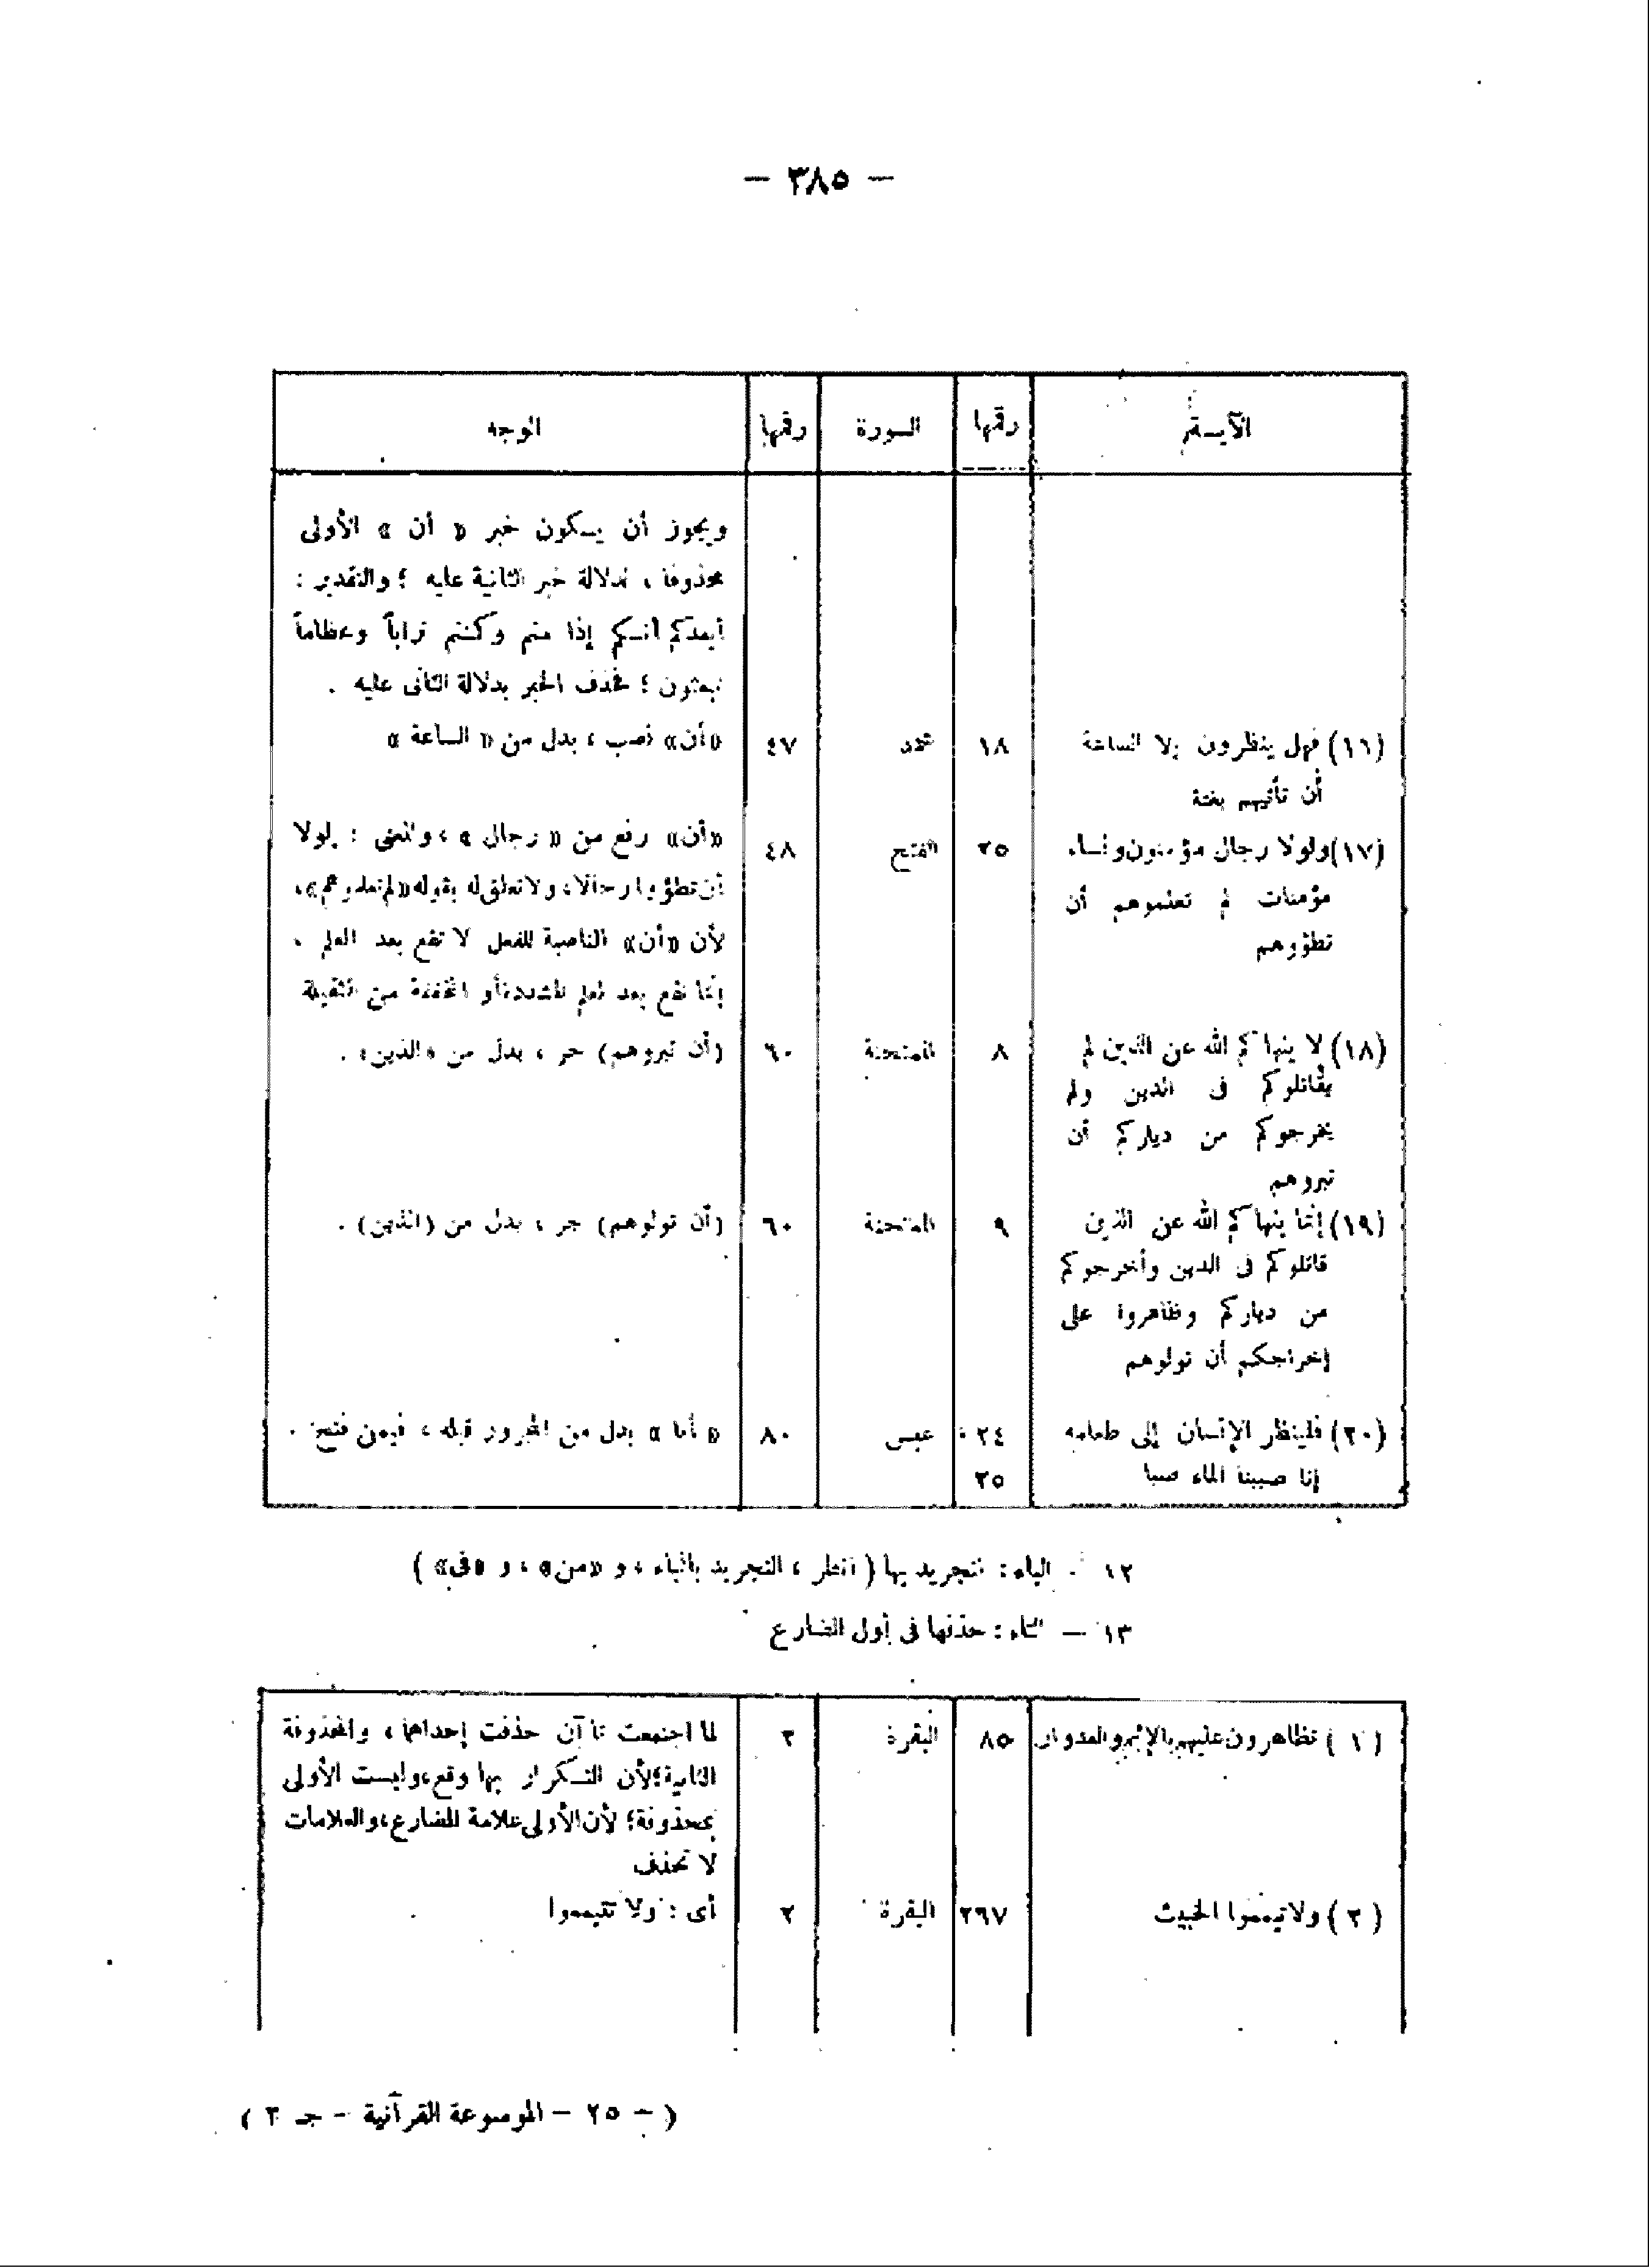 — ٣٨٥ —
الآيـــة رقمها السورة رقمها الوجه
ويجوز أن يكون خبر « أن » الأولى
محذوفا ، لدلالة خبر الثانية عليه ؛ والتقدير :
أيعدكم أنكم إذا متم وكنتم تراباً وعظاماً
تبعثون ؛ فحذف الخبر بدلالة الثانى عليه .
(١٦) فهل ينظرون إلا الساعة ١٨ محمد ٤٧ «أن» نصب ، بدل من « الساعة »
أن تأتيهم بغتة
(١٧) ولولا رجال مؤمنون ونساء ٢٥ الفتح ٤٨ «أن» رفع من « رجال » ، والمعنى : لولا
مؤمنات لم تعلموهم أن أن تطؤوا رجالا، ولا تعلق له بقوله «لم تعلموهم»،
تطؤوهم لأن «أن» الناصبة للفعل لا تقع بعد العلم ،
إنما تقع بعد العلم المشددة أو المخففة من الثقيلة
(١٨) لا ينهاكم الله عن الذين لم ٨ الممتحنة ٦٠ (أن تبروهم) جر ، بدل من «الذين» .
يقاتلوكم فى الدين ولم
يخرجوكم من دياركم أن
تبروهم
(١٩) إنما ينهاكم الله عن الذين ٩ الممتحنة ٦٠ (أن تولوهم) جر ، بدل من (الذين) .
قاتلوكم فى الدين وأخرجوكم
من دياركم وظاهروا على
إخراجكم أن تولوهم
(٢٠) فلينظر الإنسان إلى طعامه ٢٤ ، عبس ٨٠ « أنا » بدل من المجرور قبله ، فيمن فتح .
إنا صببنا الماء صبا ٢٥
١٢ — الباء : التجريد بها ( انظر ، التجريد بالباء ، و «من» ، و «فى» )
١٣ — التاء : حذفها فى أول المضارع
( ١ ) تظاهرون عليهم بالإثم والعدوان ٨٥ البقرة ٢ لما اجتمعت تاآن حذفت إحداهما ، والمحذوفة
الثانية؛ لأن التكرار بها وقع، وليست الأولى
بمحذوفة؛ لأن الأولى علامة المضارع، والعلامات
لا تحذف
( ٢ ) ولا تيمموا الخبيث ٢٦٧ البقرة ٢ أى : ولا تتيمموا
( — ٢٥ — الموسوعة القرآنية — جـ ٣ )